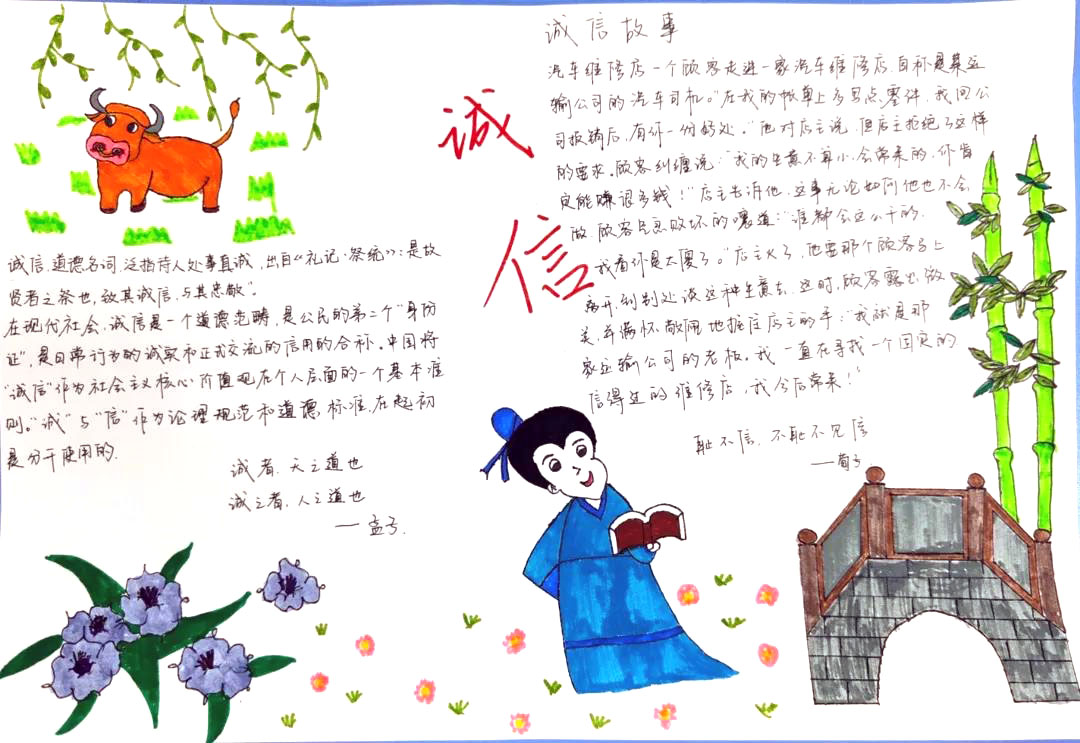 诚信
诚信,道德名词,泛指待人处事真诚,出自《礼记·祭统》:是故
贤者之祭也,致其诚信,与其忠敬”
在现代社会,诚信是一个道德范畴,是公民的第二个“身份
证”,是日常行为的诚实和正式交流的信用的合称。中国将
“诚信”作为社会主义核心价值观在个人层面的一个基本准
则。“诚”与“信”作为论理规范和道德标准,在起初
是分开使用的.
诚者,天之道也
诚之者,人之道也
——孟子.
诚信故事
汽车维修店一个顾客走进一家汽车维修店,自称是某运
输公司的汽车司机。“在我的帐单上多写点零件,我回公
司报销后,有你一份好处。”他对店主说,但店主拒绝了这样
的要求。顾客纠缠说:“我的生意不算小,会常来的,你肯
定能赚很多钱!”店主告诉他,这事无论如何他也不会
做.顾客气急败坏的嚷道:“谁都会这么干的.
我看你是太傻了。”店主火了,他要那个顾客马上
离开,到别处谈这种生意去,这时,顾客露出微
笑,并满怀敬佩地握住店主的手:“我就是那
家运输公司的老板。我一直在寻找一个固定的
信得过的维修店,我今后常来!”
耻不信,不耻不见信
——荀子